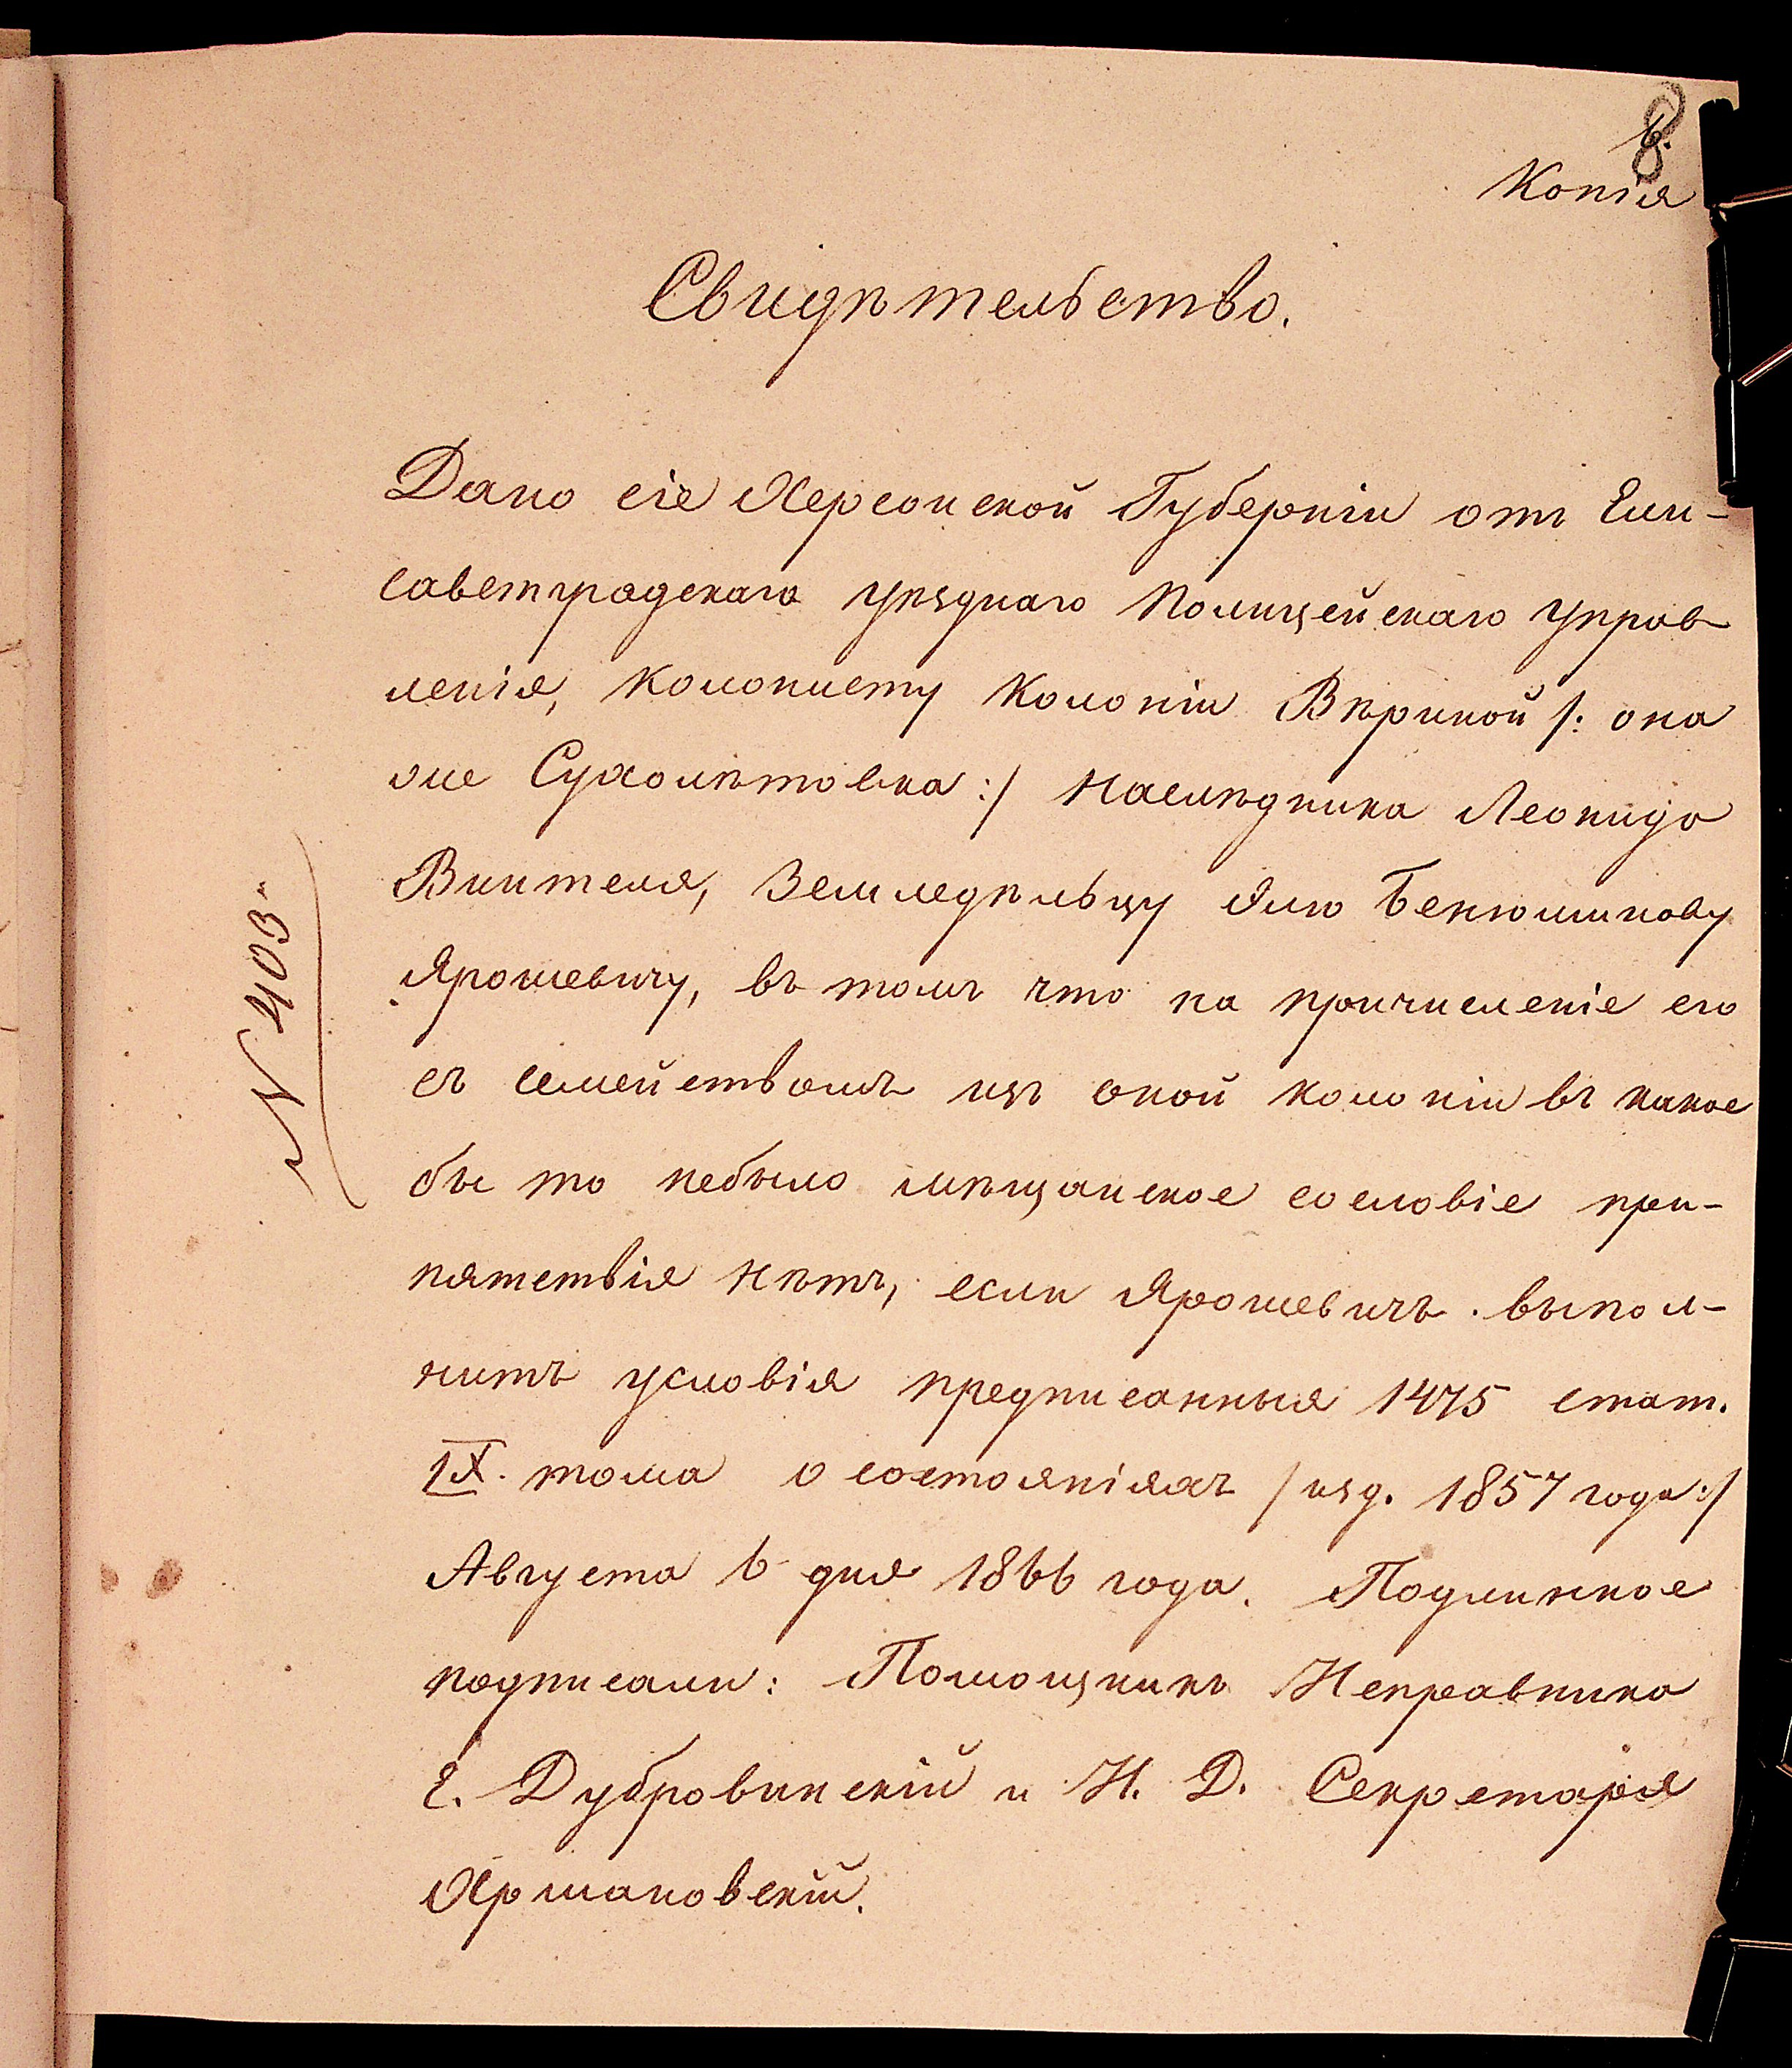 8
6.
Копія
Свидѣтельство.
Дано сіе Херсонской Губерніи отъ Ели-
саветградскаго уѣзднаго Полицейскаго управ
ленія, колонисту Колоніи Вѣриной /: она
же Сухолѣтовка :/ Наслѣдника Леонида
Виителя, Земледѣльцу Элю Бенюминову
Ярошевичу, въ томъ что на причисленіе его
съ семействомъ изъ оной колоніи въ какое
бы то небыло мѣщанское сословіе пре-
пятствія нѣтъ, если Ярошевичъ выпол-
нитъ условія предписанныя 1475 стат.
IX. тома о состояніяхъ / изд. 1857 года :/
Августа 6 дня 1866 года. Подлинное
подписали: Помощникъ Исправника
Е. Дубровинскій и И. Д. Секретаря
Хрщановскій.
N 403